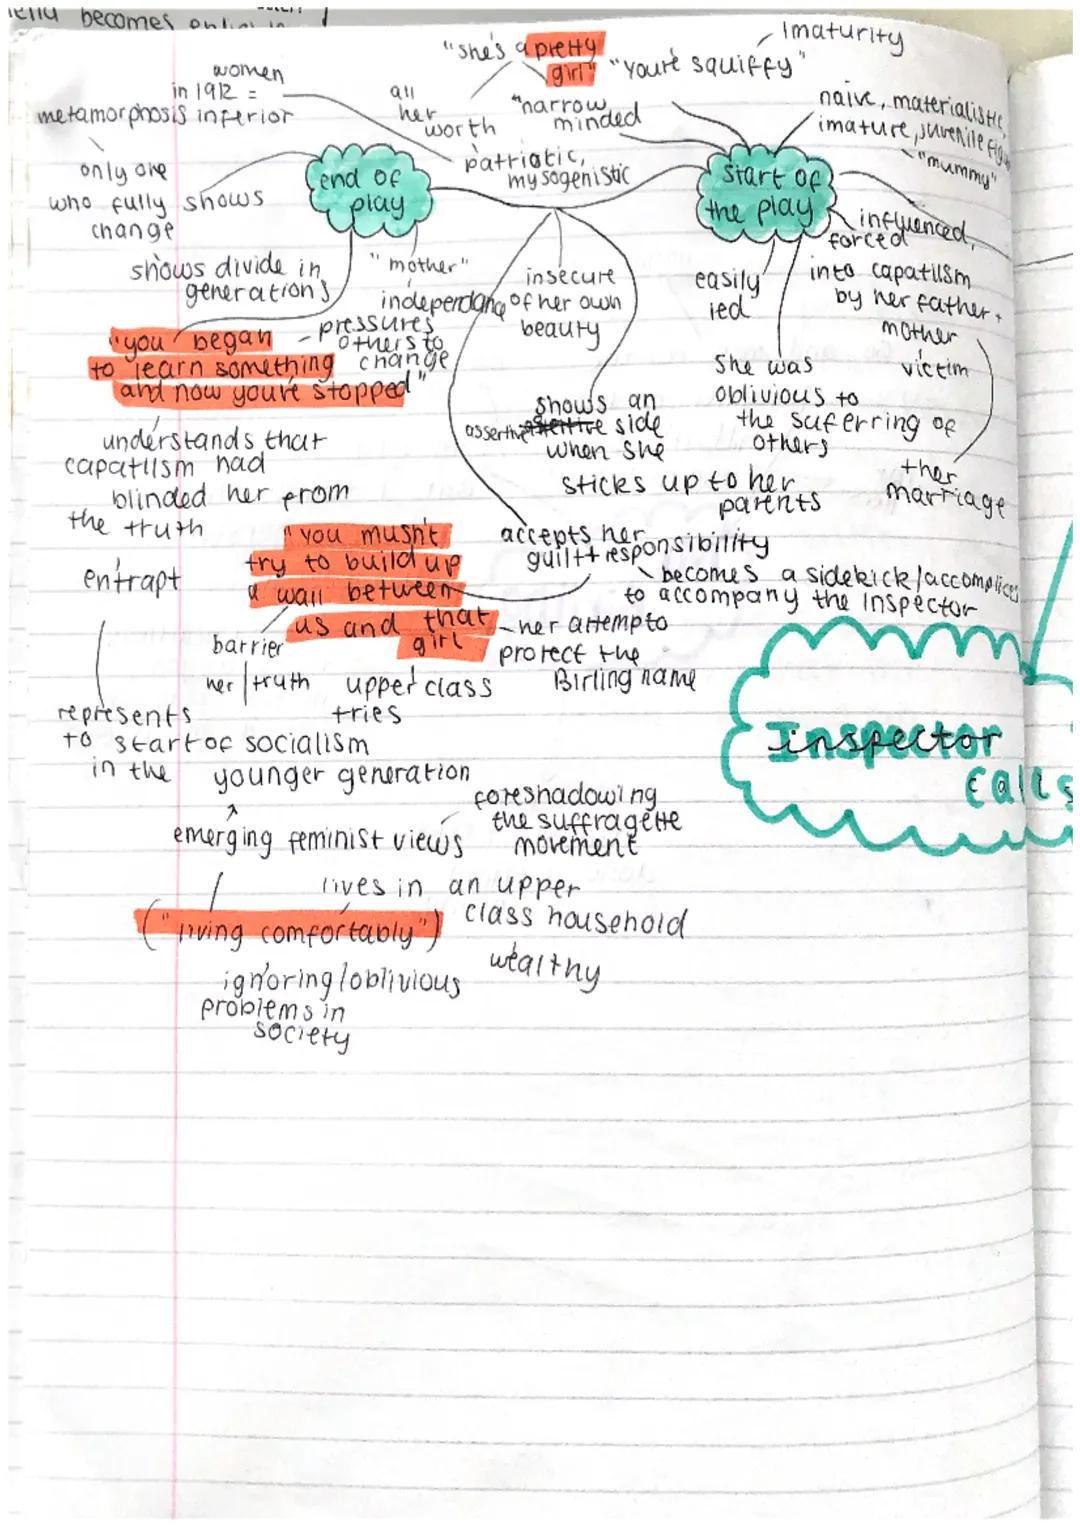 becomes
"she's a pretty
girl"
"You're squiffy"
Imaturity
women
in 1912 =
inferior
metamorphosis
all
her
worth
"narrow
minded
naive, materialistic,
imature, juvenile
"mummy"
patriotic,
mysogenistic
only one
who fully shows
change
end of
play
start of
the play
influenced,
forced
into capatilsm
by her father +
mother
victim
ther
marriage
shows divide in
generations
"mother"
independang
pressures
others to
change
insecure
of her own
beauty
easily
led
"you began
to learn something
and now you're stopped"
She was
oblivious to
the suferring of
others
shows an
assertive side
when she
sticks up to her
parents
understands that
capatilsm had
blinded her from
the truth
entrapt
accepts her
guilt + responsibility
becomes a sidekick/accomplices
to accompany the inspector
"you musn't
try to build up
a wall between
us and that
girl
her attemp to
protect the
Birling name
barrier
her | truth
upper class
tries
represents
to start of socialism
in the younger generation
Inspector
Calls
emerging feminist views
foreshadowing
the suffragette
movement
lives in an upper
class household
("living comfortably")
wealthy
ignoring/oblivious
problems in
society